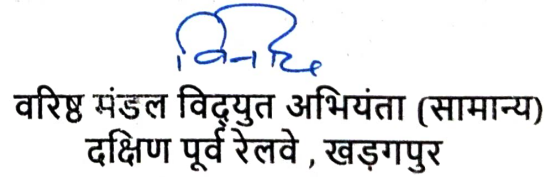 विनोद
वरिष्ठ मंडल विद्युत अभियंता (सामान्य)
दक्षिण पूर्व रेलवे , खड़गपुर